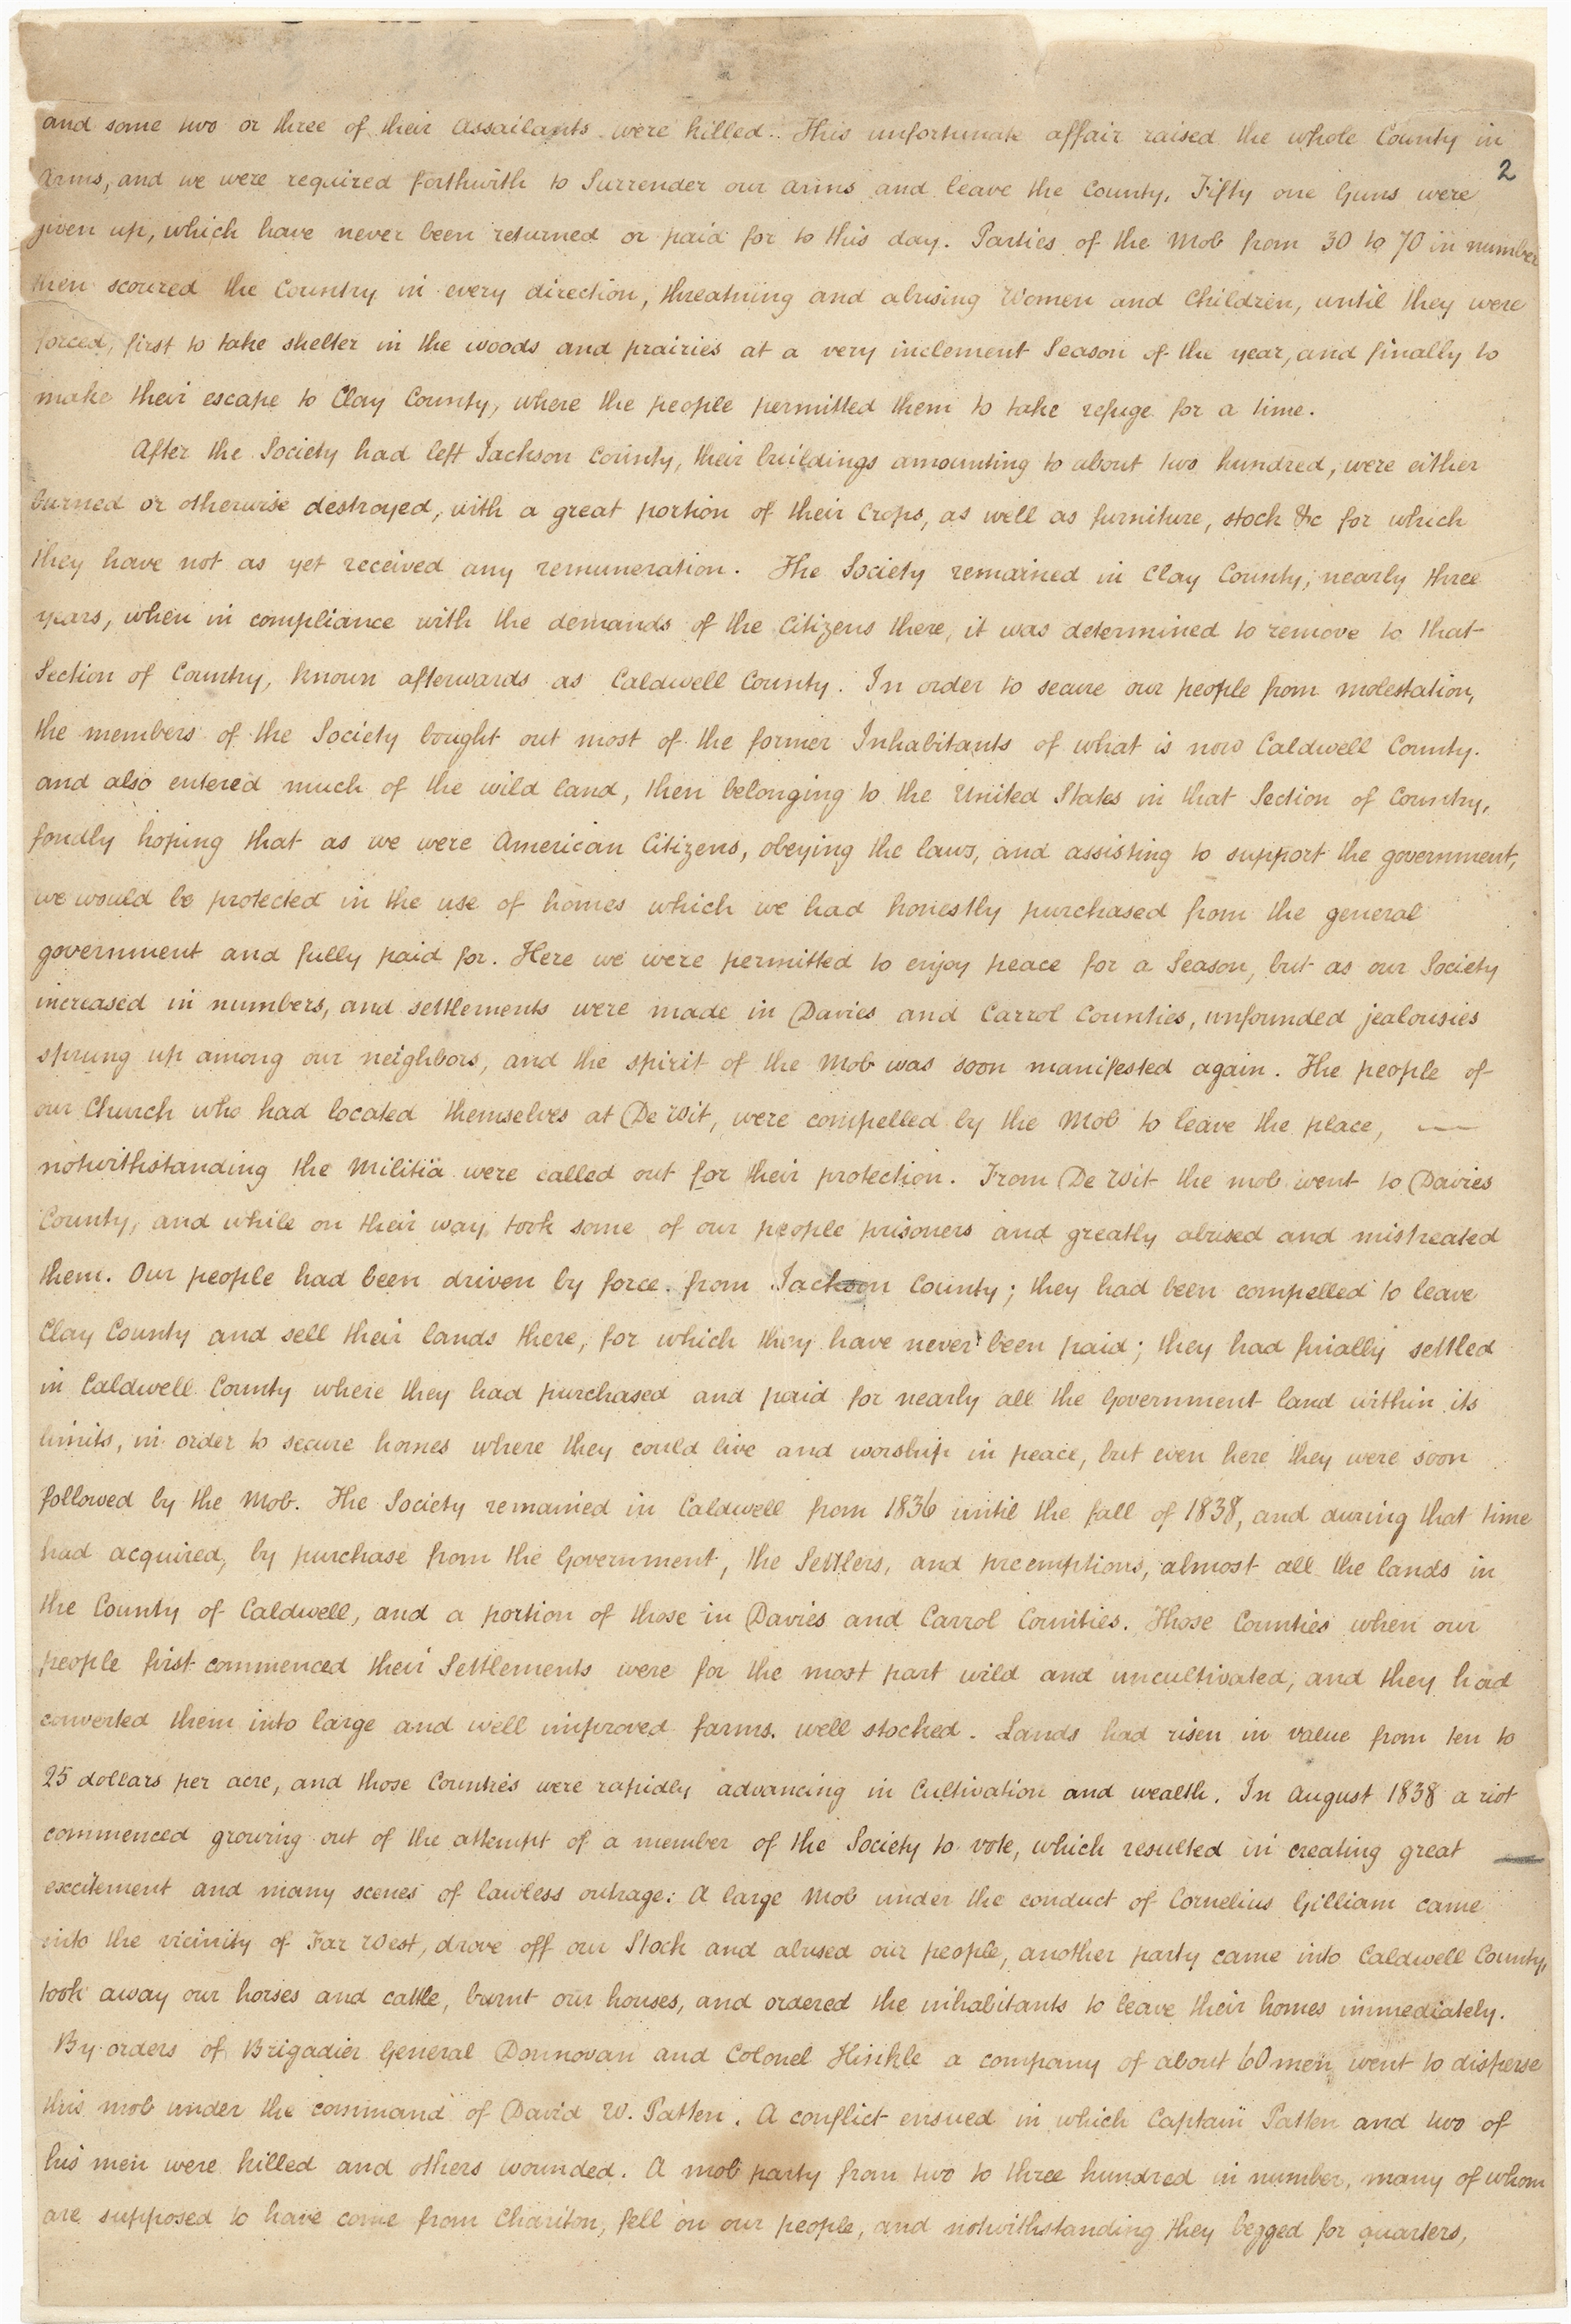 and some two or three of their assailants were killed. This unfortunate affair raised the whole County in
2
Arms, and we were required forthwith to Surrender our arms and leave the County. Fifty one Guns were
given up, which have never been returned or paid for to this day. Parties of the Mob from 30 to 70 in number
then scoured the Country in every direction, threatning and abusing Women and Children, until they were
forced, first to take shelter in the woods and prairies at a very inclement Season of the year, and finally to
make their escape to Clay County, where the people permitted them to take refuge for a time.
After the Society had left Jackson County, their buildings amounting to about two hundred, were either
burned or otherwise destroyed, with a great portion of their Crops, as well as furniture, stock &c for which
they have not as yet received any remuneration. The Society remained in Clay County, nearly three
years, when in compliance with the demands of the Citizens there, it was determined to remove to that
Section of Country, known afterwards as Caldwell County. In order to secure our people from molestation,
the members of the Society bought out most of the former Inhabitants of what is now Caldwell County.
and also entered much of the wild land, then belonging to the United States in that Section of Country,
fondly hoping that as we were American Citizens, obeying the laws, and assisting to support the government,
we would be protected in the use of homes which we had honestly purchased from the general
government and fully paid for. Here we were permitted to enjoy peace for a Season, but as our Society
increased in numbers, and settlements were made in Davies and Carrol Counties, unfounded jealousies
sprung up among our neighbors, and the spirit of the Mob was soon manifested again. The people of
our Church who had located themselves at De Wit, were compelled by the Mob to leave the place, —
notwithstanding the Militia were called out for their protection. From De Wit the mob went to Davies
County, and while on their way took some of our people prisoners and greatly abused and mistreated
them. Our people had been driven by force from Jackson County; they had been compelled to leave
Clay County and sell their lands there, for which they have never been paid; they had finally settled
in Caldwell County where they had purchased and paid for nearly all the Government land within its
limits, in order to secure homes where they could live and worship in peace, but even here they were soon
followed by the Mob. The Society remained in Caldwell from 1836 until the fall of 1838, and during that time
had acquired, by purchase from the Government, the Settlers, and preemptions, almost all the lands in
the County of Caldwell, and a portion of those in Davies and Carrol Counties. Those Counties when our
people first commenced their Settlements were for the most part wild and uncultivated, and they had
converted them into large and well improved farms. well stocked. Lands had risen in value from ten to
25 dollars per acre, and those Counties were rapidly advancing in Cultivation and wealth. In August 1838 a riot
commenced growing out of the attempt of a member of the Society to vote, which resulted in creating great —
excitement and many scenes of lawless outrage. A large Mob under the conduct of Cornelius Gilliam came
into the vicinity of Far West, drove off our Stock and abused our people, another party came into Caldwell County,
took away our horses and cattle, burnt our houses, and ordered the inhabitants to leave their homes immediately.
By orders of Brigadier General Donnovan and Colonel Hinkle a company of about 60 men went to disperse
this mob under the command of David W. Patten. A conflict ensued in which Captain Patten and two of
his men were killed and others wounded. A mob party from two to three hundred in number, many of whom
are supposed to have come from Chariton, fell on our people, and notwithstanding they begged for quarters,